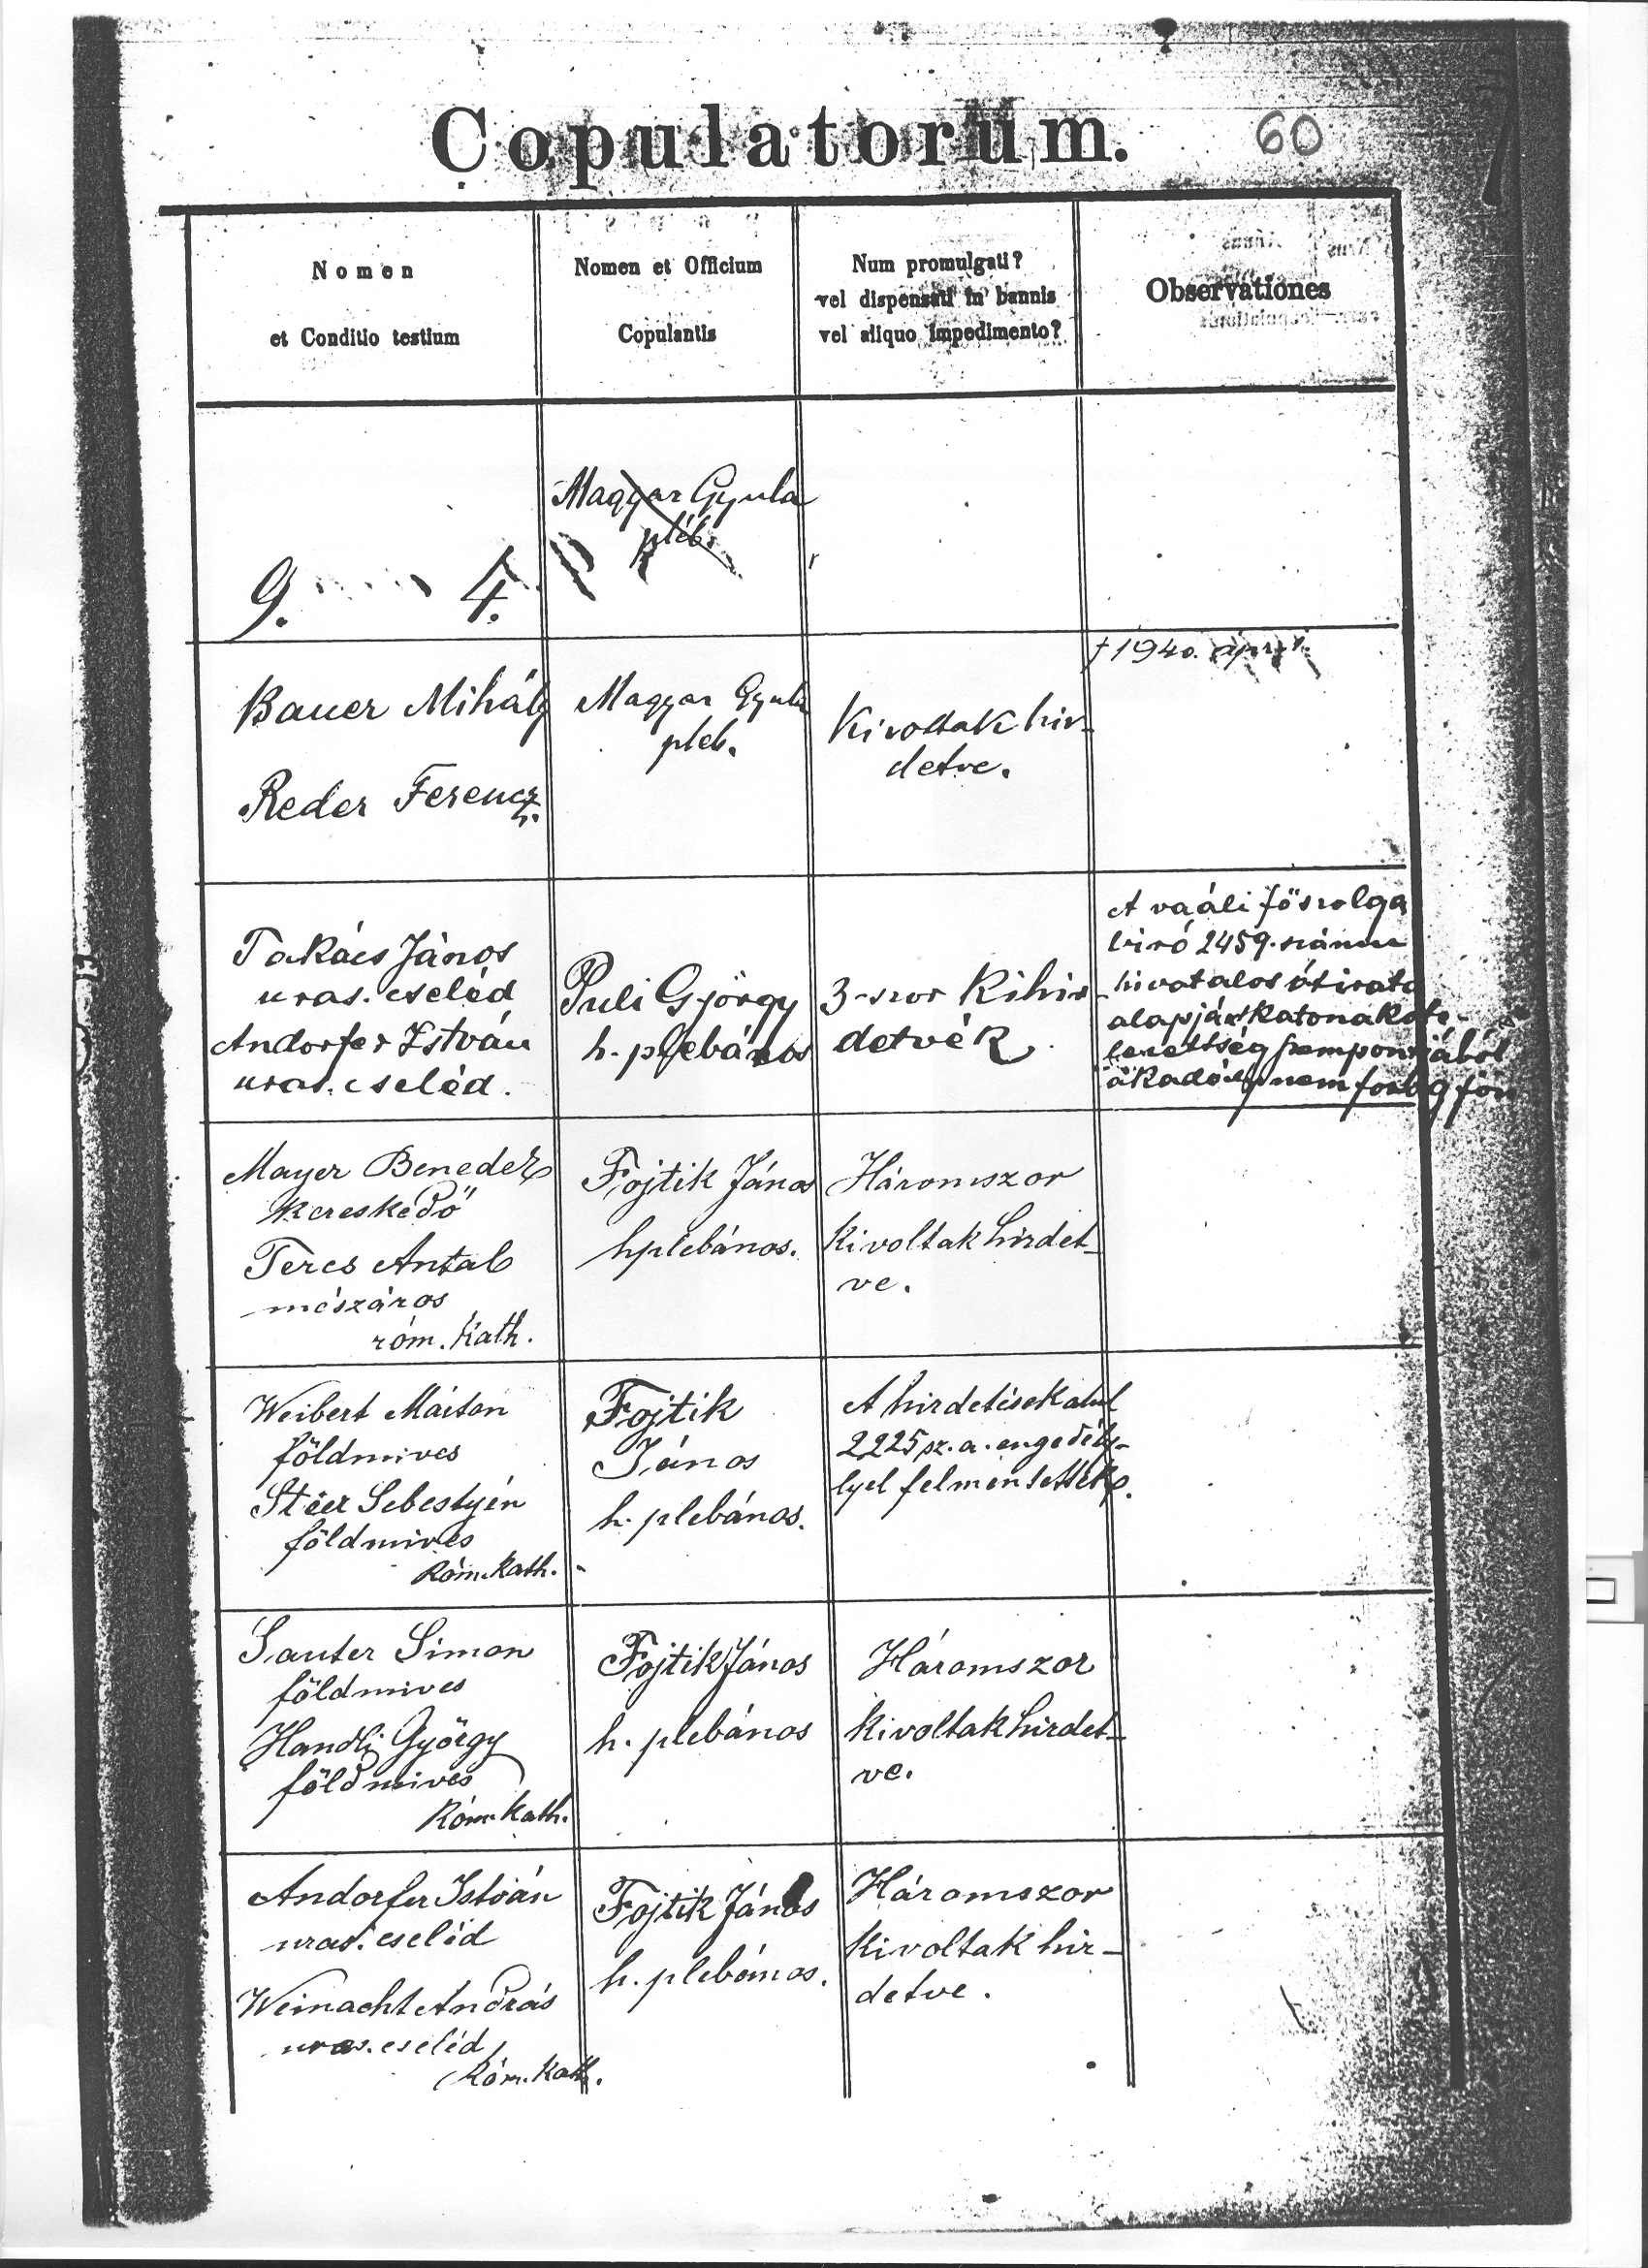 Copulatorum. 60
Nomen
et Conditio testium
Nomen et Officium
Copulantis
Num promulgati?
vel dispensati in bannis
vel aliquo impedimento?
Observationes
Magyar Gyula
pléb.
9. 4.
Bauer Mihály
Reder Ferencz
Magyar Gyula
pleb.
Kivoltak hir-
detve.
† 1940. ápr.
Takács János
uras. cseléd
Andorfer István
uras. cseléd.
Puli György
h. plebános
3-szor Kihir
detvék
A vaáli főszolga
biró 2459. számu
hivatalos átirata
alapján katonaköte-
lezettség szempontjából
akadály nem forog fön
Mayer Benedek
Kereskedő
Teres Antal
mészáros
róm. Kath.
Fojtik János
hplebános.
Háromszor
kivoltak hirdet-
ve.
Weibert Márton
földmives
Stéer Sebestyén
földmives
Róm. Kath.
Fojtik
János
h. plebános.
A hirdetések alul
2225 sz. a. engedély-
lyel felmentettek.
Sauter Simon
földmives
Handli György
földmives
Róm. Kath.
Fojtik János
h. plebános
Háromszor
kivoltak hirdet-
ve.
Andorfer István
uras. cseléd
Weinacht András
uras. cseléd
Róm. Kath.
Fojtik János
h. plebános.
Háromszor
kivoltak hir-
detve.